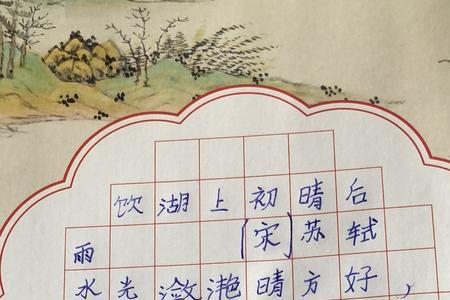 饮湖上初晴后
雨 [宋]苏轼
水光潋滟晴方好，